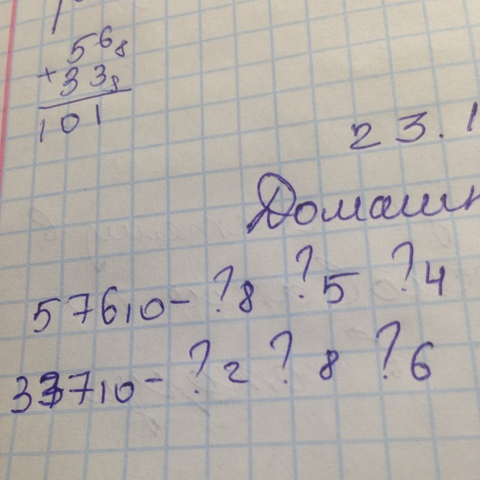 56₈
+ 33₈
101
23.1
Домашн
576₁₀ - ?₈ ?₅ ?₄
337₁₀ - ?₂ ?₈ ?₆